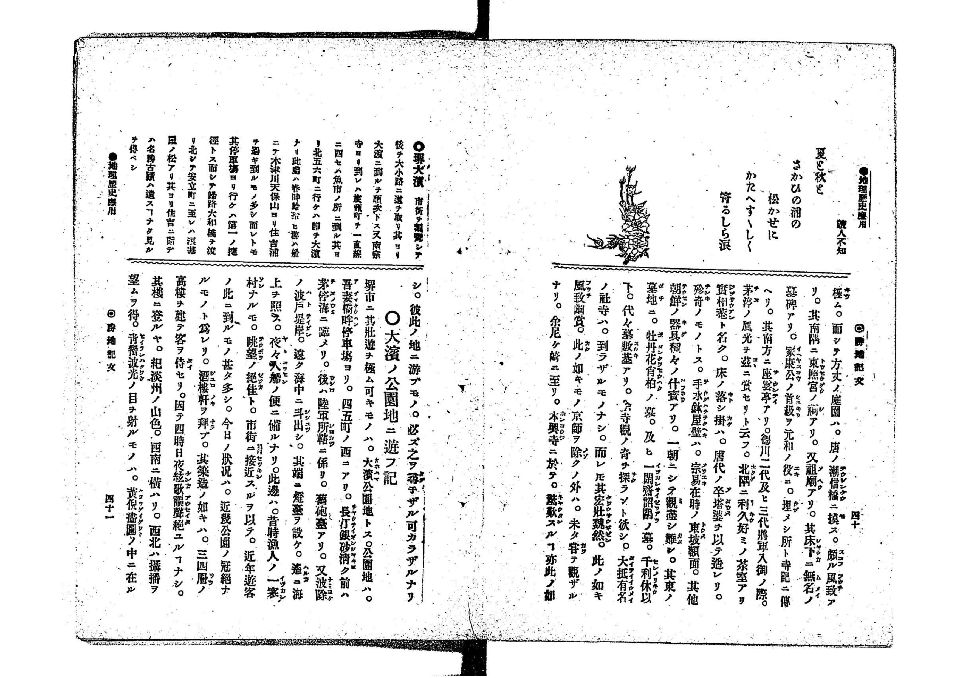 ●地理歴史應用
讀人不知
夏と秋と
さかひの浦の
松かせに
かたへすゝしく
寄るしら浪
◎勝地記文
四十
極ム。而シテ方丈ノ庭園ハ。唐ノ潮信橋ニ擬ス。頗ル風致ア
リ。其南隅ニ東照宮ノ祠アリ。又祖廟アリ。其床下ニ無名ノ
墓碑アリ。家康公ノ首級ヲ元和ノ役ニ。埋メシ所ト寺記ニ傳
ヘリ。其南方ニ座雲亭アリ。德川二代及ヒ三代將軍入御ノ際。
茅渟ノ風光ヲ茲ニ賞セリト云フ。北隅ニ利久好ミノ茶室アリ
實相菴ト名ク。床ノ落シ掛ハ。唐代ノ卒塔婆ヲ以テ造レリ。
珍奇ノモノトス。手水鉢屋壁ハ。宗易在時ノ東坡額面。其他
朝鮮ノ器具種々ノ什寶アリ。一朝ニシテ觀盡シ難シ。其東ノ
墓地ニ。牡丹花肖柏ノ墓。及ヒ一閑齋韶鷗ノ墓。千利休以
下。代々墓數基アリ。今寺觀ノ奇ヲ探ラント欲シ。大抵有名
ノ社寺ハ。到ラザルモノナシ。而レモ其宏壯巍然。此ノ如キ
風致絢賞。此ノ如キモノ京師ヲ除クノ外ハ。未タ嘗テ觀ザル
ナリ。余尼ケ崎ニ至リ。本興寺ニ於テ。驚歎スルコ亦此ノ如
シ。彼此ノ地ニ游ブモノ。必ズ之ヲ尋子ザル可カラザルナリ
●堺大濱　市街ヲ觀覽シテ
後チ大小路ニ道ヲ取リ其ヨリ
大濱ニ到ルヲ順路トス又南宗
寺ヨリ到レハ旅籠町ヲ一直線
ニ西セハ魚市ノ所ニ到ル其ヨ
リ北五六町ニ行ケハ即チ大濱
ナリ此處ハ春時
ニテ木津川天保山ヨリ住吉浦
ヲ過キ到ルモノ多シ而シトモ
其停車塲ヨリ行ケハ第一ノ捷
徑トス而シテ歸路大和橋ヲ渡
リ北シテ安立町ニ至レハ
風ノ松アリ其ヨリ住吉ニ詣テ
ハ名勝古蹟ハ遺スコナク見ル
ヲ得ベシ
●地理歴史應用
○大濱ノ公園地ニ遊フ記
堺市ニ其壯遊ヲ極ム可キモノハ。大濱公園地トス。公園地ハ。
吾妻橋畔停車塲ヨリ。四五町ノ西ニアリ。長汀銀砂淸ク前ハ
茅渟海ニ臨メリ。後ハ陸軍所轄ニ係リ。舊砲臺アリ。又波除
ノ波戸堤岸。遠ク海中ニ斗出シ。其端ニ燈臺ヲ設ケ。遙ニ海
上ヲ照ラ。夜々入船ノ便ニ備ルナリ。此邊ハ。昔時漁人ノ一寒
村ナルモ。眺望ノ絕佳ト。市街ニ接近スルヲ以テ。近年遊客
ノ此ニ到ルモノ甚タ多シ。今日ノ狀况ハ。近畿公園ノ冠絕ナ
ルモノト爲レリ。酒樓軒ヲ拜ブ。其築造ノ如キハ。三四層ノ
高樓ヲ建テ客ヲ待セリ。因テ四時日夜絃歌觀聲絕ユルコナシ。
其樓ニ登ルヤ。紀淡州ノ山色。西南ニ橫ハリ。西北ハ攝播ヲ
望ムヲ得。靑螺波光ノ日ヲ射ルモノハ。黄視蕩園ノ中ニ在ル
◎勝地記文
四十一